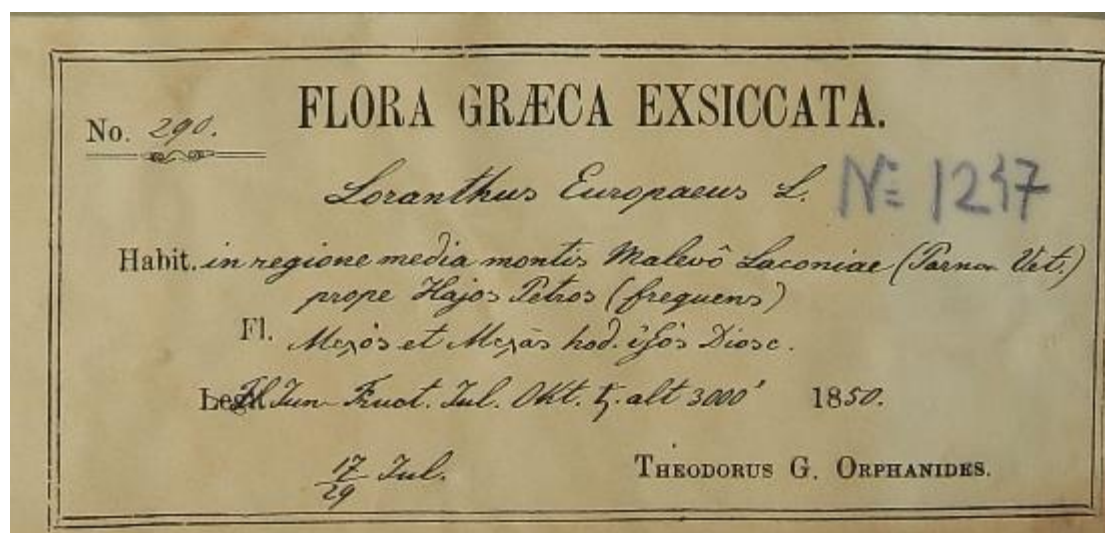 FLORA GRÆCA EXSICCATA.
No. 290.
Loranthus Europaeus L. No 1247
Habit. in regione media montis Malevô Laconiae (Parnon Vet.)
prope Hajos Petros (frequens)
Fl. et hod. Diosc.
Legit Fl. Jun. Fruct. Jul. Okt. ♄. alt 3000' 1850.
17/29 Jul. THEODORUS G. ORPHANIDES.